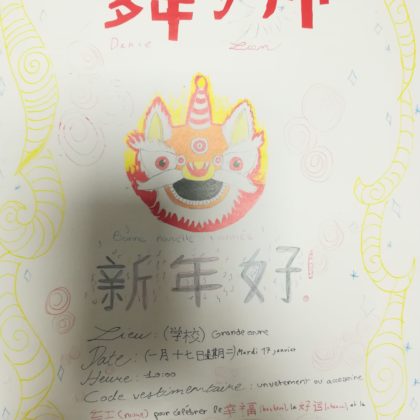 Danse Lion
Bonne nouvelle année
新年好!
Lieu: (学校) Grande cour
Date: (一月十七日星期二) Mardi 17 janvier
Heure: 12:00
Code vestimentaire: un vêtement ou accessoire
红 (rouge) pour célébrer le 幸福 (bonheur), la 好运 (chance) et la